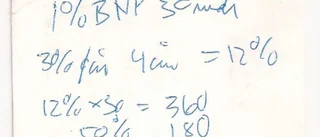 1% BNP 30 mdr
3% för 4 år = 12%
12% x 30 = 360
50% 180